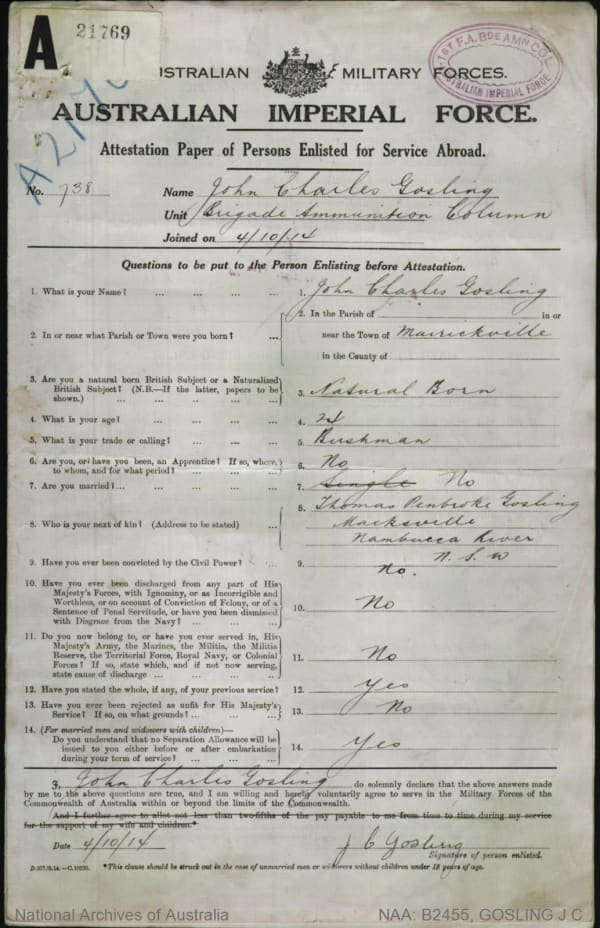 A 21769
A217
1ST F.A. BDE AMN COL
AUSTRALIAN IMPERIAL FORCE
AUSTRALIAN MILITARY FORCES.
AUSTRALIAN IMPERIAL FORCE.
Attestation Paper of Persons Enlisted for Service Abroad.
No. 738 Name John Charles Gosling
Unit Brigade Ammunition Column
Joined on 4/10/14
Questions to be put to the Person Enlisting before Attestation.
1. What is your Name? ... ... ... ... 1. John Charles Gosling
2. In the Parish of in or
2. In or near what Parish or Town were you born? ... near the Town of Marrickville
in the County of
3. Are you a natural born British Subject or a Naturalized
British Subject? (N.B.—If the latter, papers to be
shown.) ... ... ... ... ... 3. Natural Born
4. What is your age? ... ... ... ... 4. 24
5. What is your trade or calling? ... ... ... 5. Bushman
6. Are you, or have you been, an Apprentice? If so, where,
to whom, and for what period? ... ... ... 6. No
7. Are you married?... ... ... ... ... 7. Single No
8. Thomas Penbroke Gosling
8. Who is your next of kin? (Address to be stated) ... Macksville
Nambucca River
N. S. W
9. Have you ever been convicted by the Civil Power? ... 9. No.
10. Have you ever been discharged from any part of His
Majesty's Forces, with Ignominy, or as Incorrigible and
Worthless, or on account of Conviction of Felony, or of a
Sentence of Penal Servitude, or have you been dismissed
with Disgrace from the Navy? ... ... ... 10. No
11. Do you now belong to, or have you ever served in, His
Majesty's Army, the Marines, the Militia, the Militia
Reserve, the Territorial Force, Royal Navy, or Colonial
Forces? If so, state which, and if not now serving,
state cause of discharge ... ... ... ... 11. No
12. Have you stated the whole, if any, of your previous service? 12. Yes
13. Have you ever been rejected as unfit for His Majesty's
Service? If so, on what grounds? ... ... ... 13. No
14. (For married men and widowers with children)—
Do you understand that no Separation Allowance will be
issued to you either before or after embarkation
during your term of service? ... ... ... 14. Yes
I, John Charles Gosling do solemnly declare that the above answers made
by me to the above questions are true, and I am willing and hereby voluntarily agree to serve in the Military Forces of the
Commonwealth of Australia within or beyond the limits of the Commonwealth.
And I further agree to allot not less than two-fifths of the pay payable to me from time to time during my service
for the support of my wife and children.*
Date 4/10/14 J C Gosling
Signature of person enlisted.
*This clause should be struck out in the case of unmarried men or widowers without children under 18 years of age.
National Archives of Australia NAA: B2455, GOSLING J C